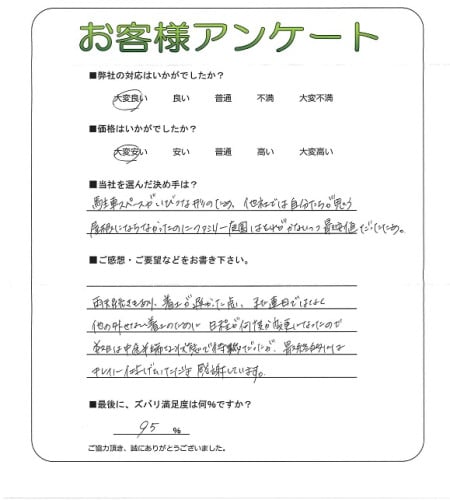 お客様アンケート
■弊社の対応はいかがでしたか？
大変良い 良い 普通 不満 大変不満
■価格はいかがでしたか？
大変安い 安い 普通 高い 大変高い
■当社を選んだ決め手は？
駐車スペースがいびつな形のため、他社では自分たちが思う
屋根にならなかったのにファミリー庭園は かつ最安値だったため。
■ご感想・ご要望などをお書き下さい。
雨続きもあり、着工が遅かった点、また連日ではなく
他の外せない着工のために日程が何度か変更になったので
半端な状態で だったが、最終的には
キレイに仕上げていただき感謝しています。
■最後に、ズバリ満足度は何％ですか？
95 ％
ご協力頂き、誠にありがとうございました。